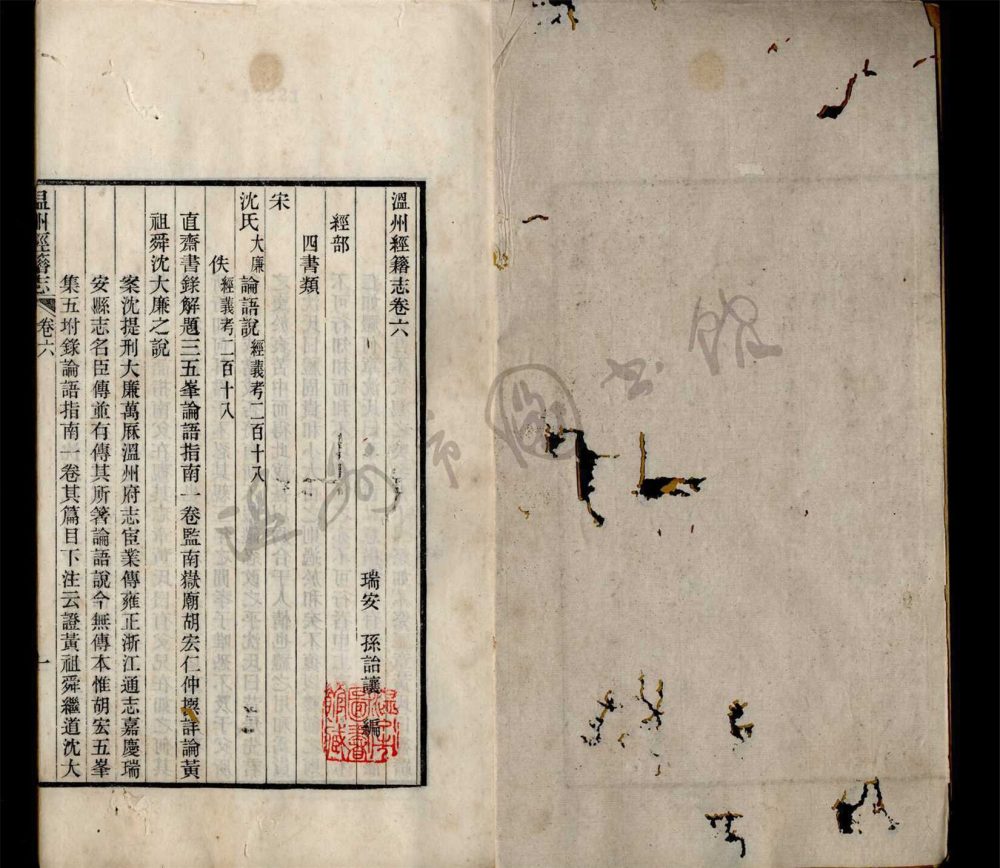 溫州經籍志卷六
瑞安 孫詒讓 編
經部
四書類
宋
沈氏大廉論語說經義考二百十八
佚經義考二百十八
直齋書錄解題三五峯論語指南一卷監南嶽廟胡宏仁仲撰詳論黃
祖舜沈大廉之說
案沈提刑大廉萬厤溫州府志宦業傳雍正浙江通志嘉慶瑞
安縣志名臣傳並有傳其所著論語說今無傳本惟胡宏五峯
集五坿錄論語指南一卷其篇目下注云證黃祖舜繼道沈大
溫州經籍志
卷六
一
溫州市圖書館